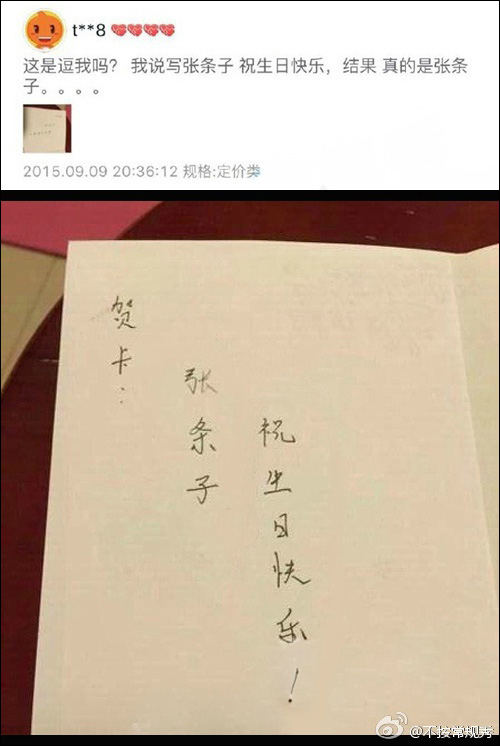 t**8
这是逗我吗？ 我说写张条子 祝生日快乐，结果 真的是张条
子。。。。
2015.09.09 20:36:12 规格:定价类
贺卡：
张条子
祝生日快乐！
@不按常规秀